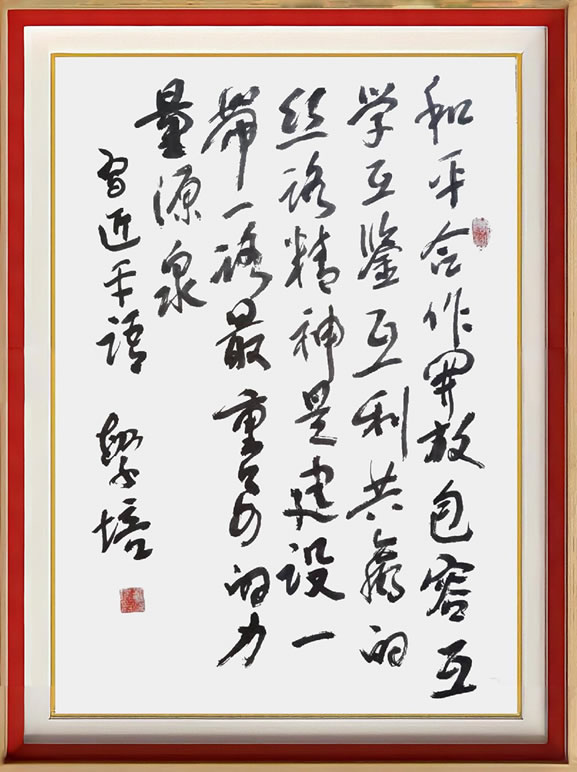 和平合作開放包容互
学互鉴互利共赢的
丝路精神是建设一
带一路最重要的力
量源泉
习近平语 黎培